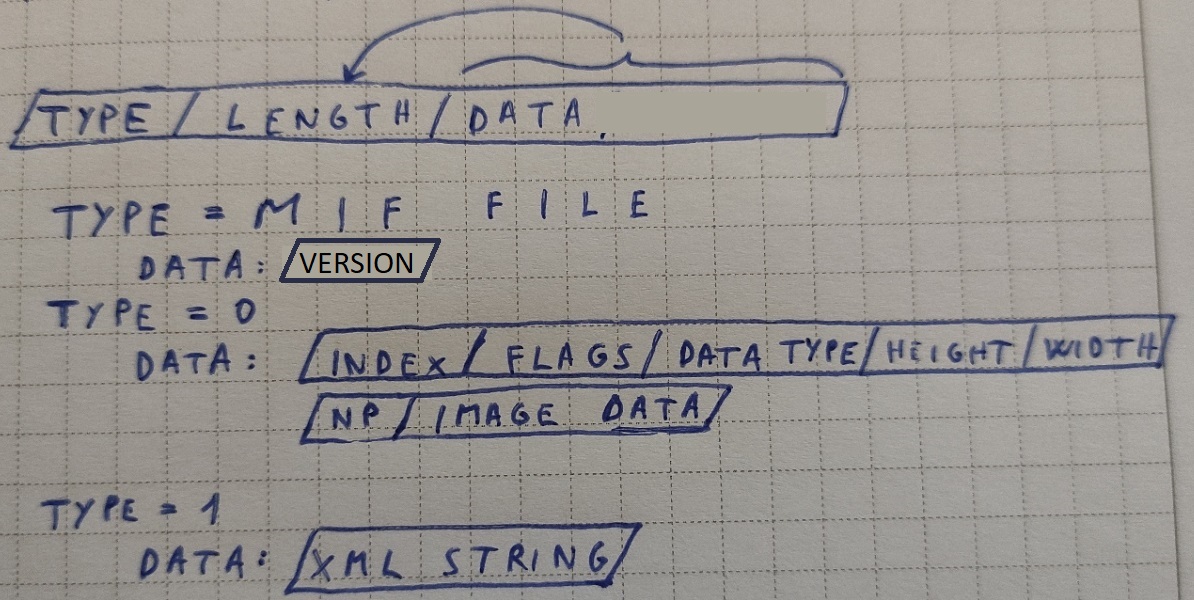 TYPE / LENGTH / DATA
TYPE = MIF FILE
DATA: VERSION
TYPE = 0
DATA: / INDEX / FLAGS / DATA TYPE / HEIGHT / WIDTH
/ NP / IMAGE DATA /
TYPE = 1
DATA: / XML STRING /